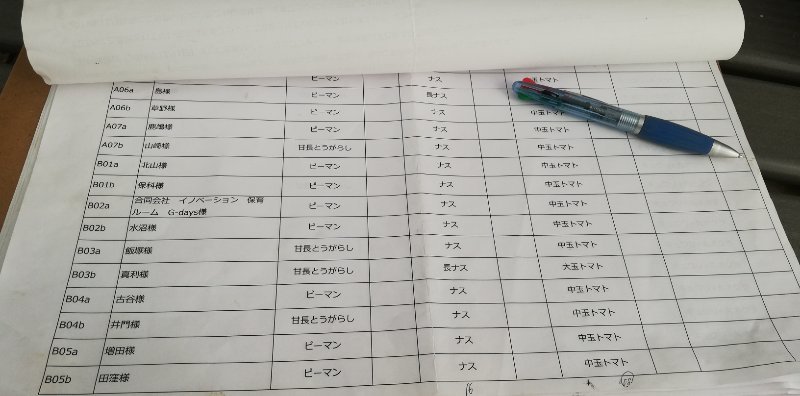 ピーマン ナス 玉トマト
A06a 島様 ピーマン 長ナス
A06b 草野様 ピーマン ナス 中玉トマト
A07a 鹿嶋様 ピーマン ナス 中玉トマト
A07b 山崎様 甘長とうがらし ナス 中玉トマト
B01a 北山様 ピーマン ナス 中玉トマト
B01b 保科様 ピーマン ナス 中玉トマト
B02a 合同会社 イノベーション 保育
ルーム G-days様 ピーマン ナス 中玉トマト
B02b 水沼様 ピーマン ナス 中玉トマト
B03a 飯塚様 甘長とうがらし ナス 中玉トマト
B03b 真利様 甘長とうがらし 長ナス 大玉トマト
B04a 古谷様 ピーマン ナス 中玉トマト
B04b 井門様 甘長とうがらし ナス 中玉トマト
B05a 増田様 ピーマン ナス 中玉トマト
B05b 田窪様 ピーマン ナス 中玉トマト